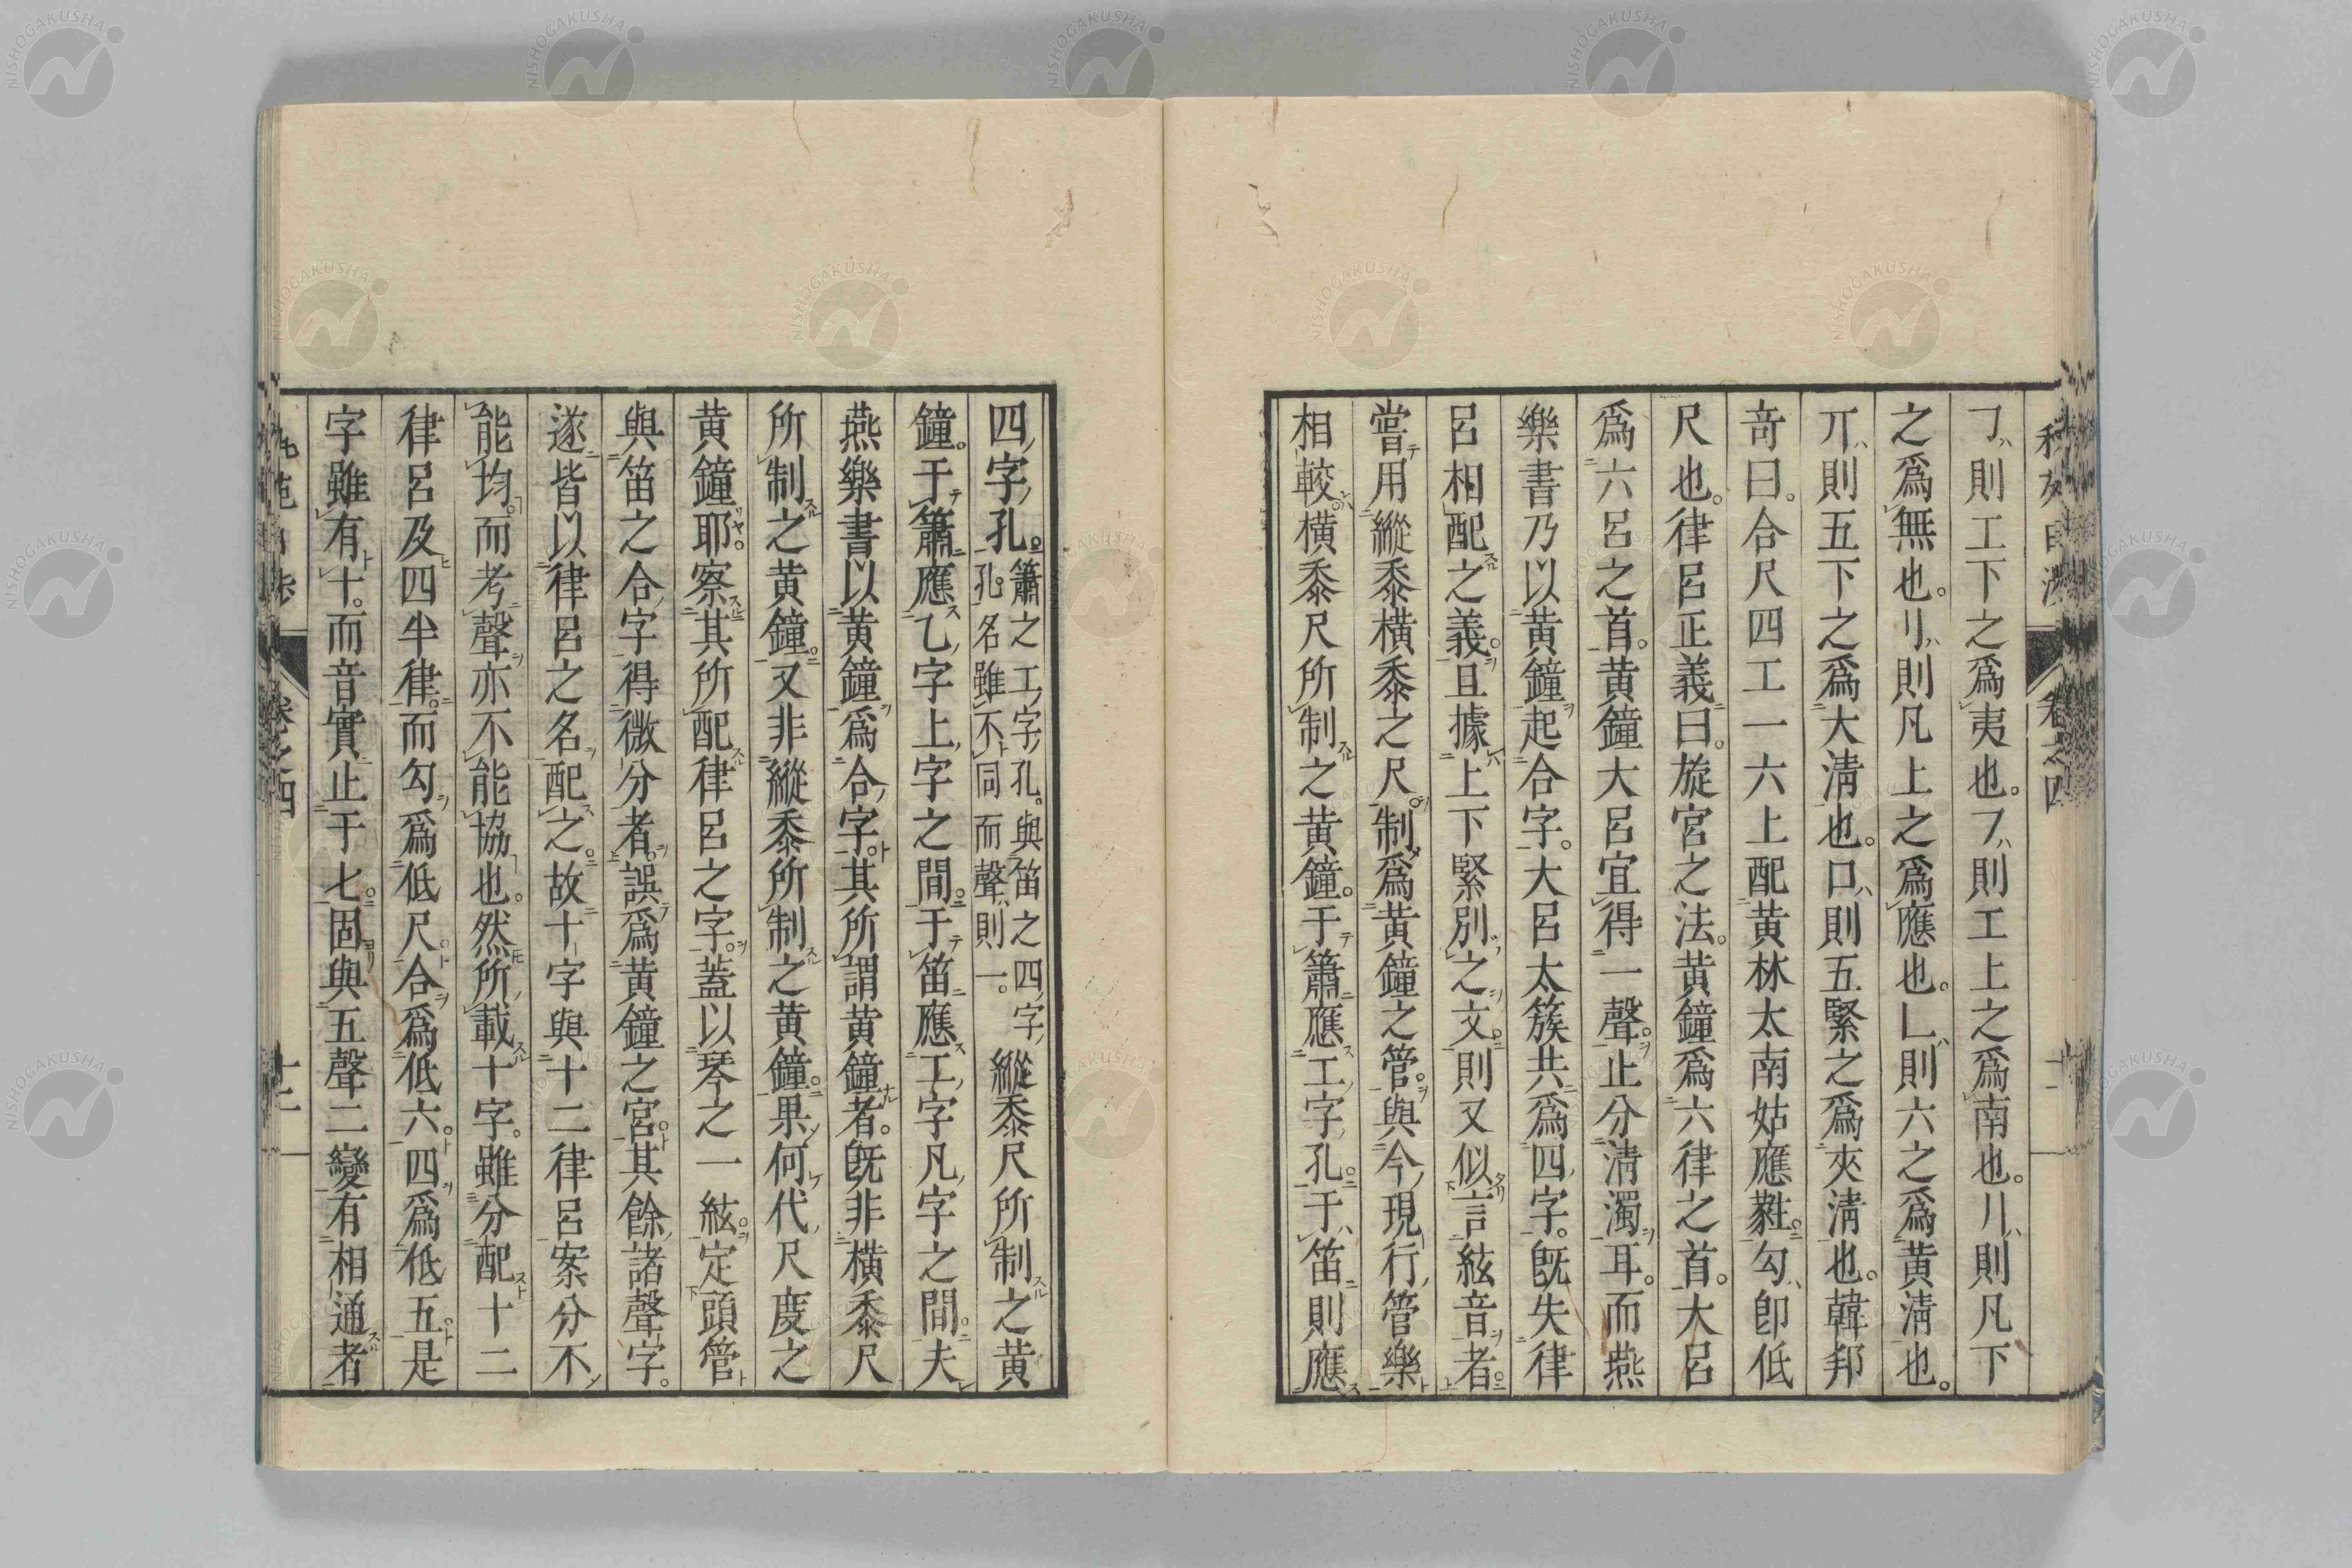 ㇆則工下之爲夷也。フ則工上之爲南也。〢則凡下
之爲無也。リ則凡上之爲應也。𠃊則六之爲黄淸也。
丌則五下之爲大淸也。口則五緊之爲夾淸也。韓邦
奇曰。合尺四工一六上配黄林太南姑應蕤。勾卽低
尺也。律呂正義曰。旋宮之法。黄鐘爲六律之首。大呂
爲六呂之首。黄鐘大呂宜得一聲。止分淸濁耳。而燕
樂書乃以黄鐘起合字。大呂太簇共爲四字。旣失律
呂相配之義。且據上下緊別之文。則又似言絃音者。
嘗用縱黍橫黍之尺。制爲黄鐘之管。與今現行管樂
相較。橫黍尺所制之黄鐘。于簫應工字孔。于笛則應
四字孔。簫之工字孔。與笛之四字
孔。名雖不同而聲則一。縱黍尺所制之黄
鐘。于簫應乙字上字之間。于笛應工字凡字之間。夫
燕樂書以黄鐘爲合字。其所謂黄鐘者。旣非橫黍尺
所制之黄鐘。又非縱黍所制之黄鐘。果何代尺度之
黄鐘耶。察其所配律呂之字。蓋以琴之一絃。定頭管
與笛之合字得微分者。誤爲黄鐘之宮。其餘諸聲字。
遂皆以律呂之名配之。故十字與十二律呂案分不
能均。而考聲亦不能協也。然所載十字。雖分配十二
律呂及四半律。而勾爲低尺。合爲低六。四爲低五。是
字雖有十。而音實止于七。固與五聲二變有相通者
卷之四
十二